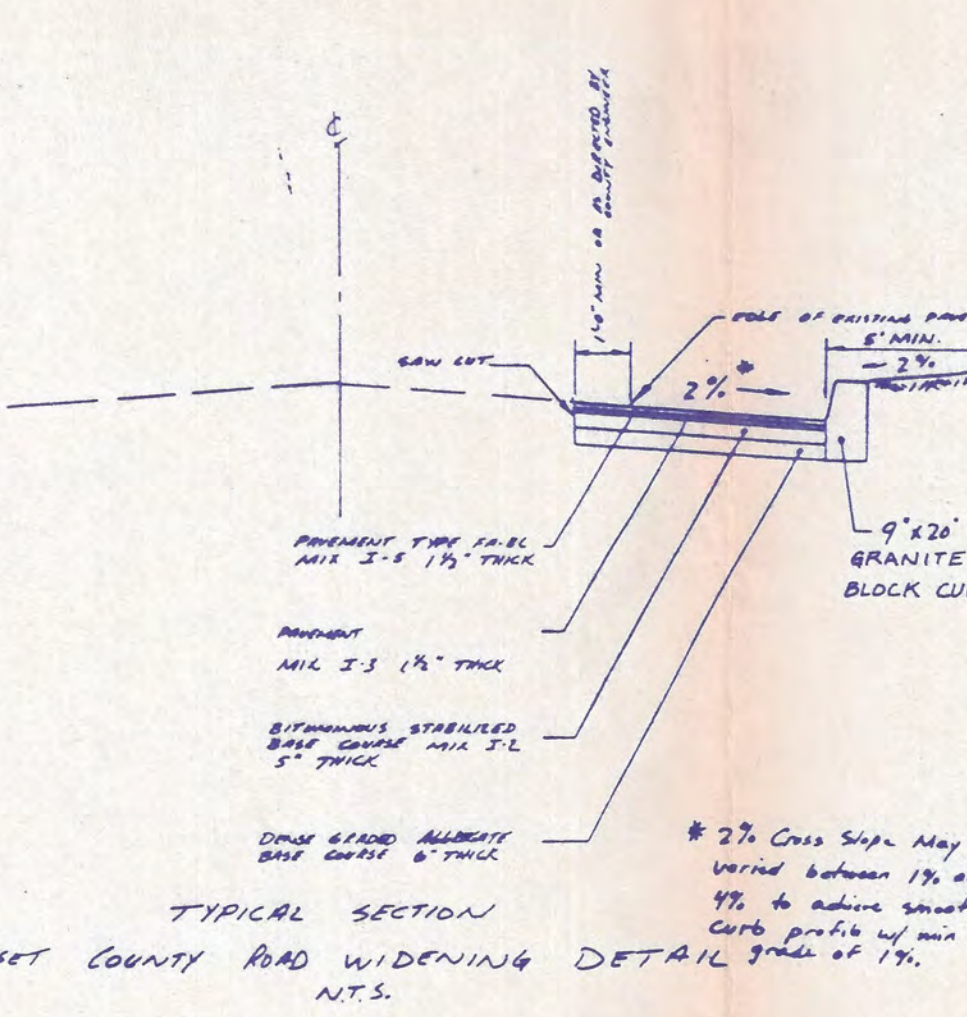 ℄
1'-0" MIN OR AS DIRECTED BY
COUNTY ENGINEER
EDGE OF EXISTING PAVE
5' MIN.
2%
SAW CUT
2% *
PAVEMENT TYPE FA-BC
MIX I-5 1½" THICK
9"x20"
GRANITE
BLOCK CU
PAVEMENT
MIX I-3 1½" THICK
BITUMINOUS STABILIZED
BASE COURSE MIX I-2
5" THICK
DENSE GRADED AGGREGATE
BASE COURSE 6" THICK
* 2% Cross Slope May
varied between 1% a
4% to achieve smoot
curb profile w/ min
grade of 1%.
TYPICAL SECTION
SET COUNTY ROAD WIDENING DETAIL
N.T.S.